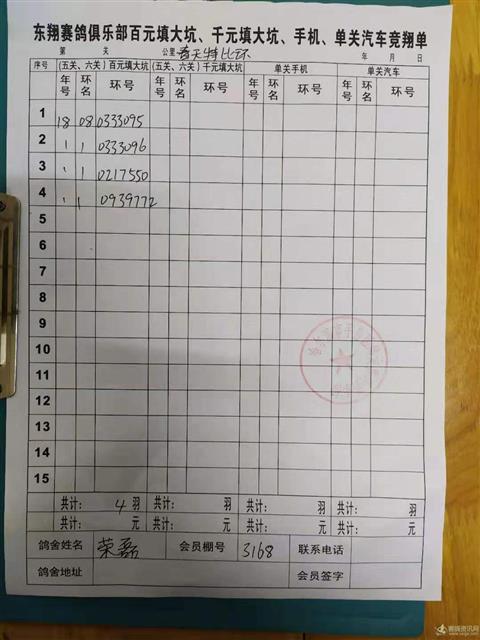 东翔赛鸽俱乐部百元填大坑、千元填大坑、手机、单关汽车竞翔单
第 关 公里 春天特比环 年 月 日
序号 (五关、六关)百元填大坑 (五关、六关)千元填大坑 单关手机 单关汽车
年号 环名 环号 年号 环名 环号 年号 环名 环号 年号 环名 环号
1 18 08 0333095
2 、 1 0333096
3 、 1 0217550
4 、 1 0939772
5
6
7
8
9
10
11
12
13
14
15
共计: 4羽 共计: 羽 共计: 羽 共计: 羽
共计: 元 共计: 元 共计: 元 共计: 元
鸽舍姓名 荣磊 会员棚号 3168 联系电话
鸽舍地址 会员签字
赛鸽资讯网